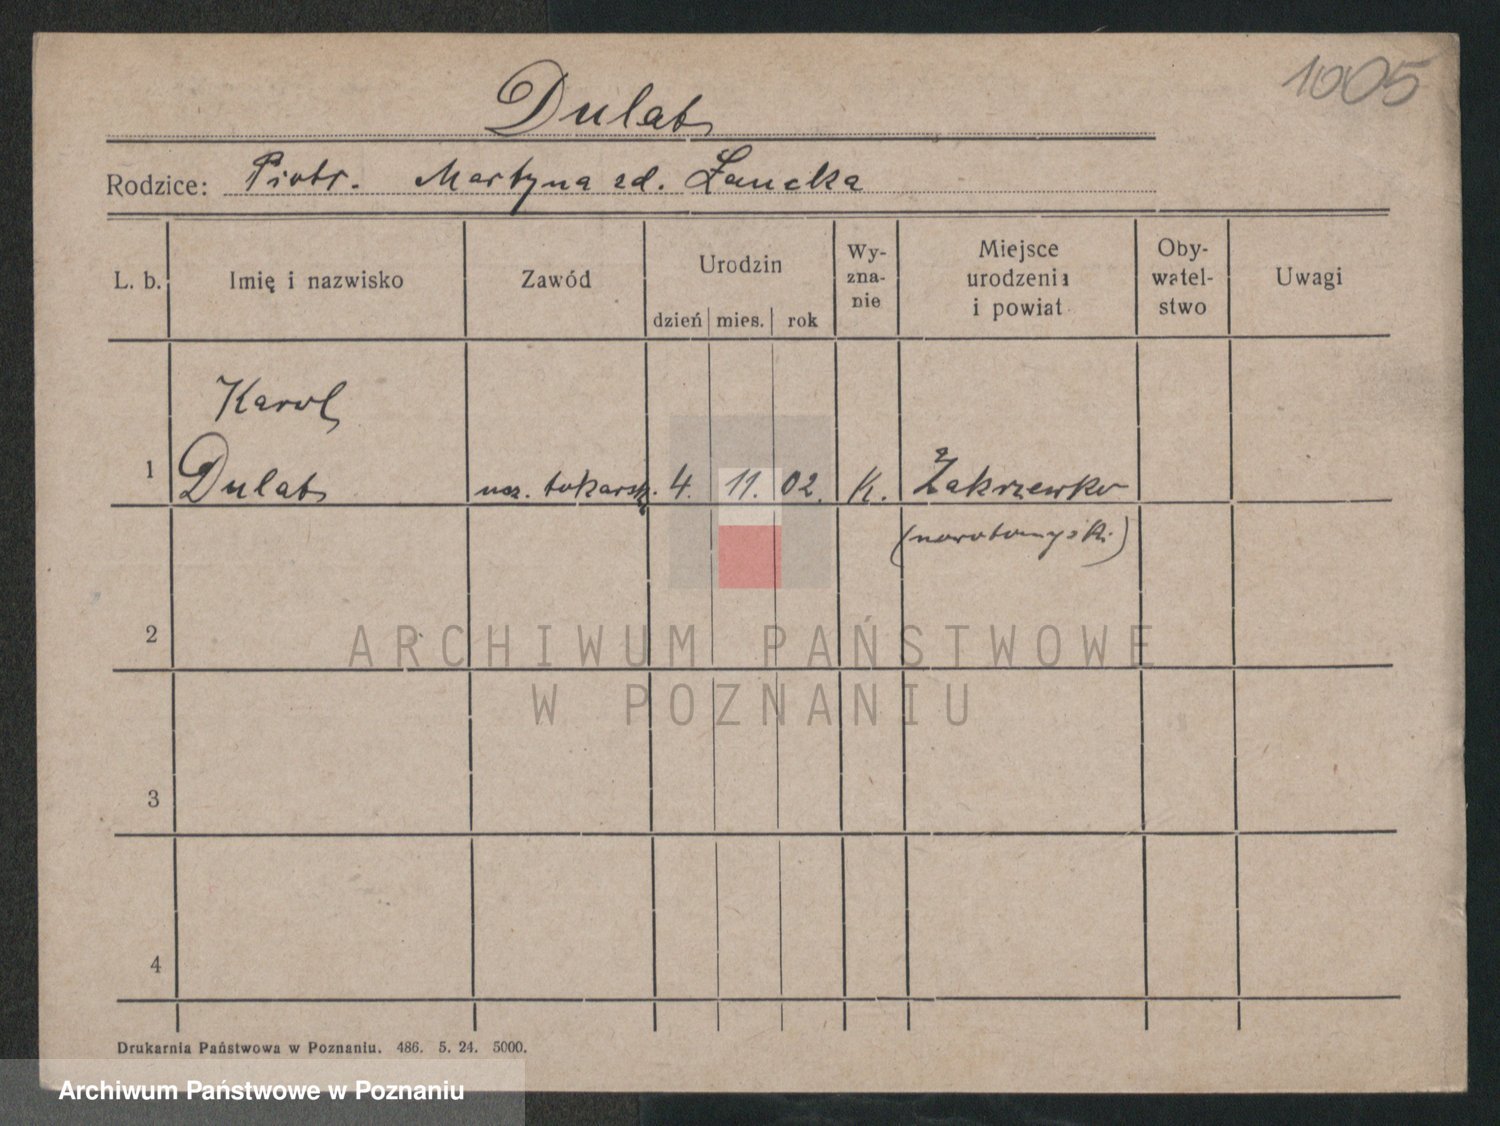 1005
Dulat
Rodzice: Piotr. Martyna zd. Łancka
L. b. Imię i nazwisko Zawód Urodzin dzień mies. rok Wy-zna-nie Miejsce urodzenia i powiat Oby-watel-stwo Uwagi
Karol
1 Dulat ucz. tokarsk. 4. 11. 02. K. Zakrzewko
(nowotomyski)
2
ARCHIWUM PAŃSTWOWE
W POZNANIU
3
4
Drukarnia Państwowa w Poznaniu. 486. 5. 24. 5000.
Archiwum Państwowe w Poznaniu